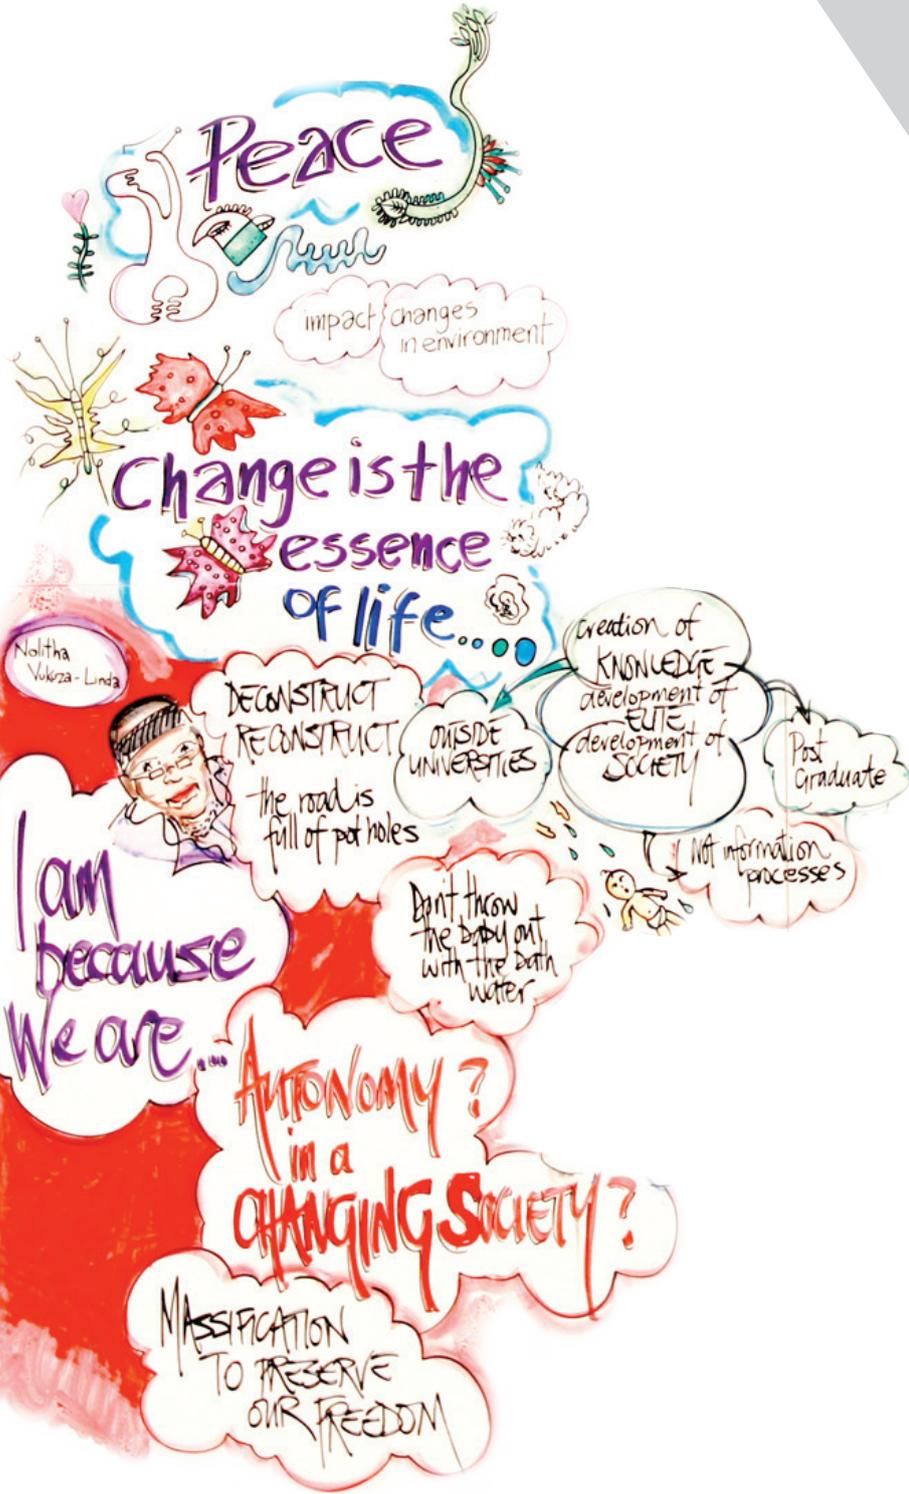 Peace
impact changes
in environment
Change is the
essence
of life....
Nolitha
Vukuza-Linda
DECONSTRUCT
RECONSTRUCT
the road is
full of pot holes
OUTSIDE
UNIVERSITIES
creation of
KNOWLEDGE
development of
ELITE
development of
SOCIETY
Post
Graduate
Not information
processes
I am
because
We are....
Don't throw
the baby out
with the bath
water
AUTONOMY?
in a
CHANGING SOCIETY?
MASSIFICATION
TO PRESERVE
OUR FREEDOM